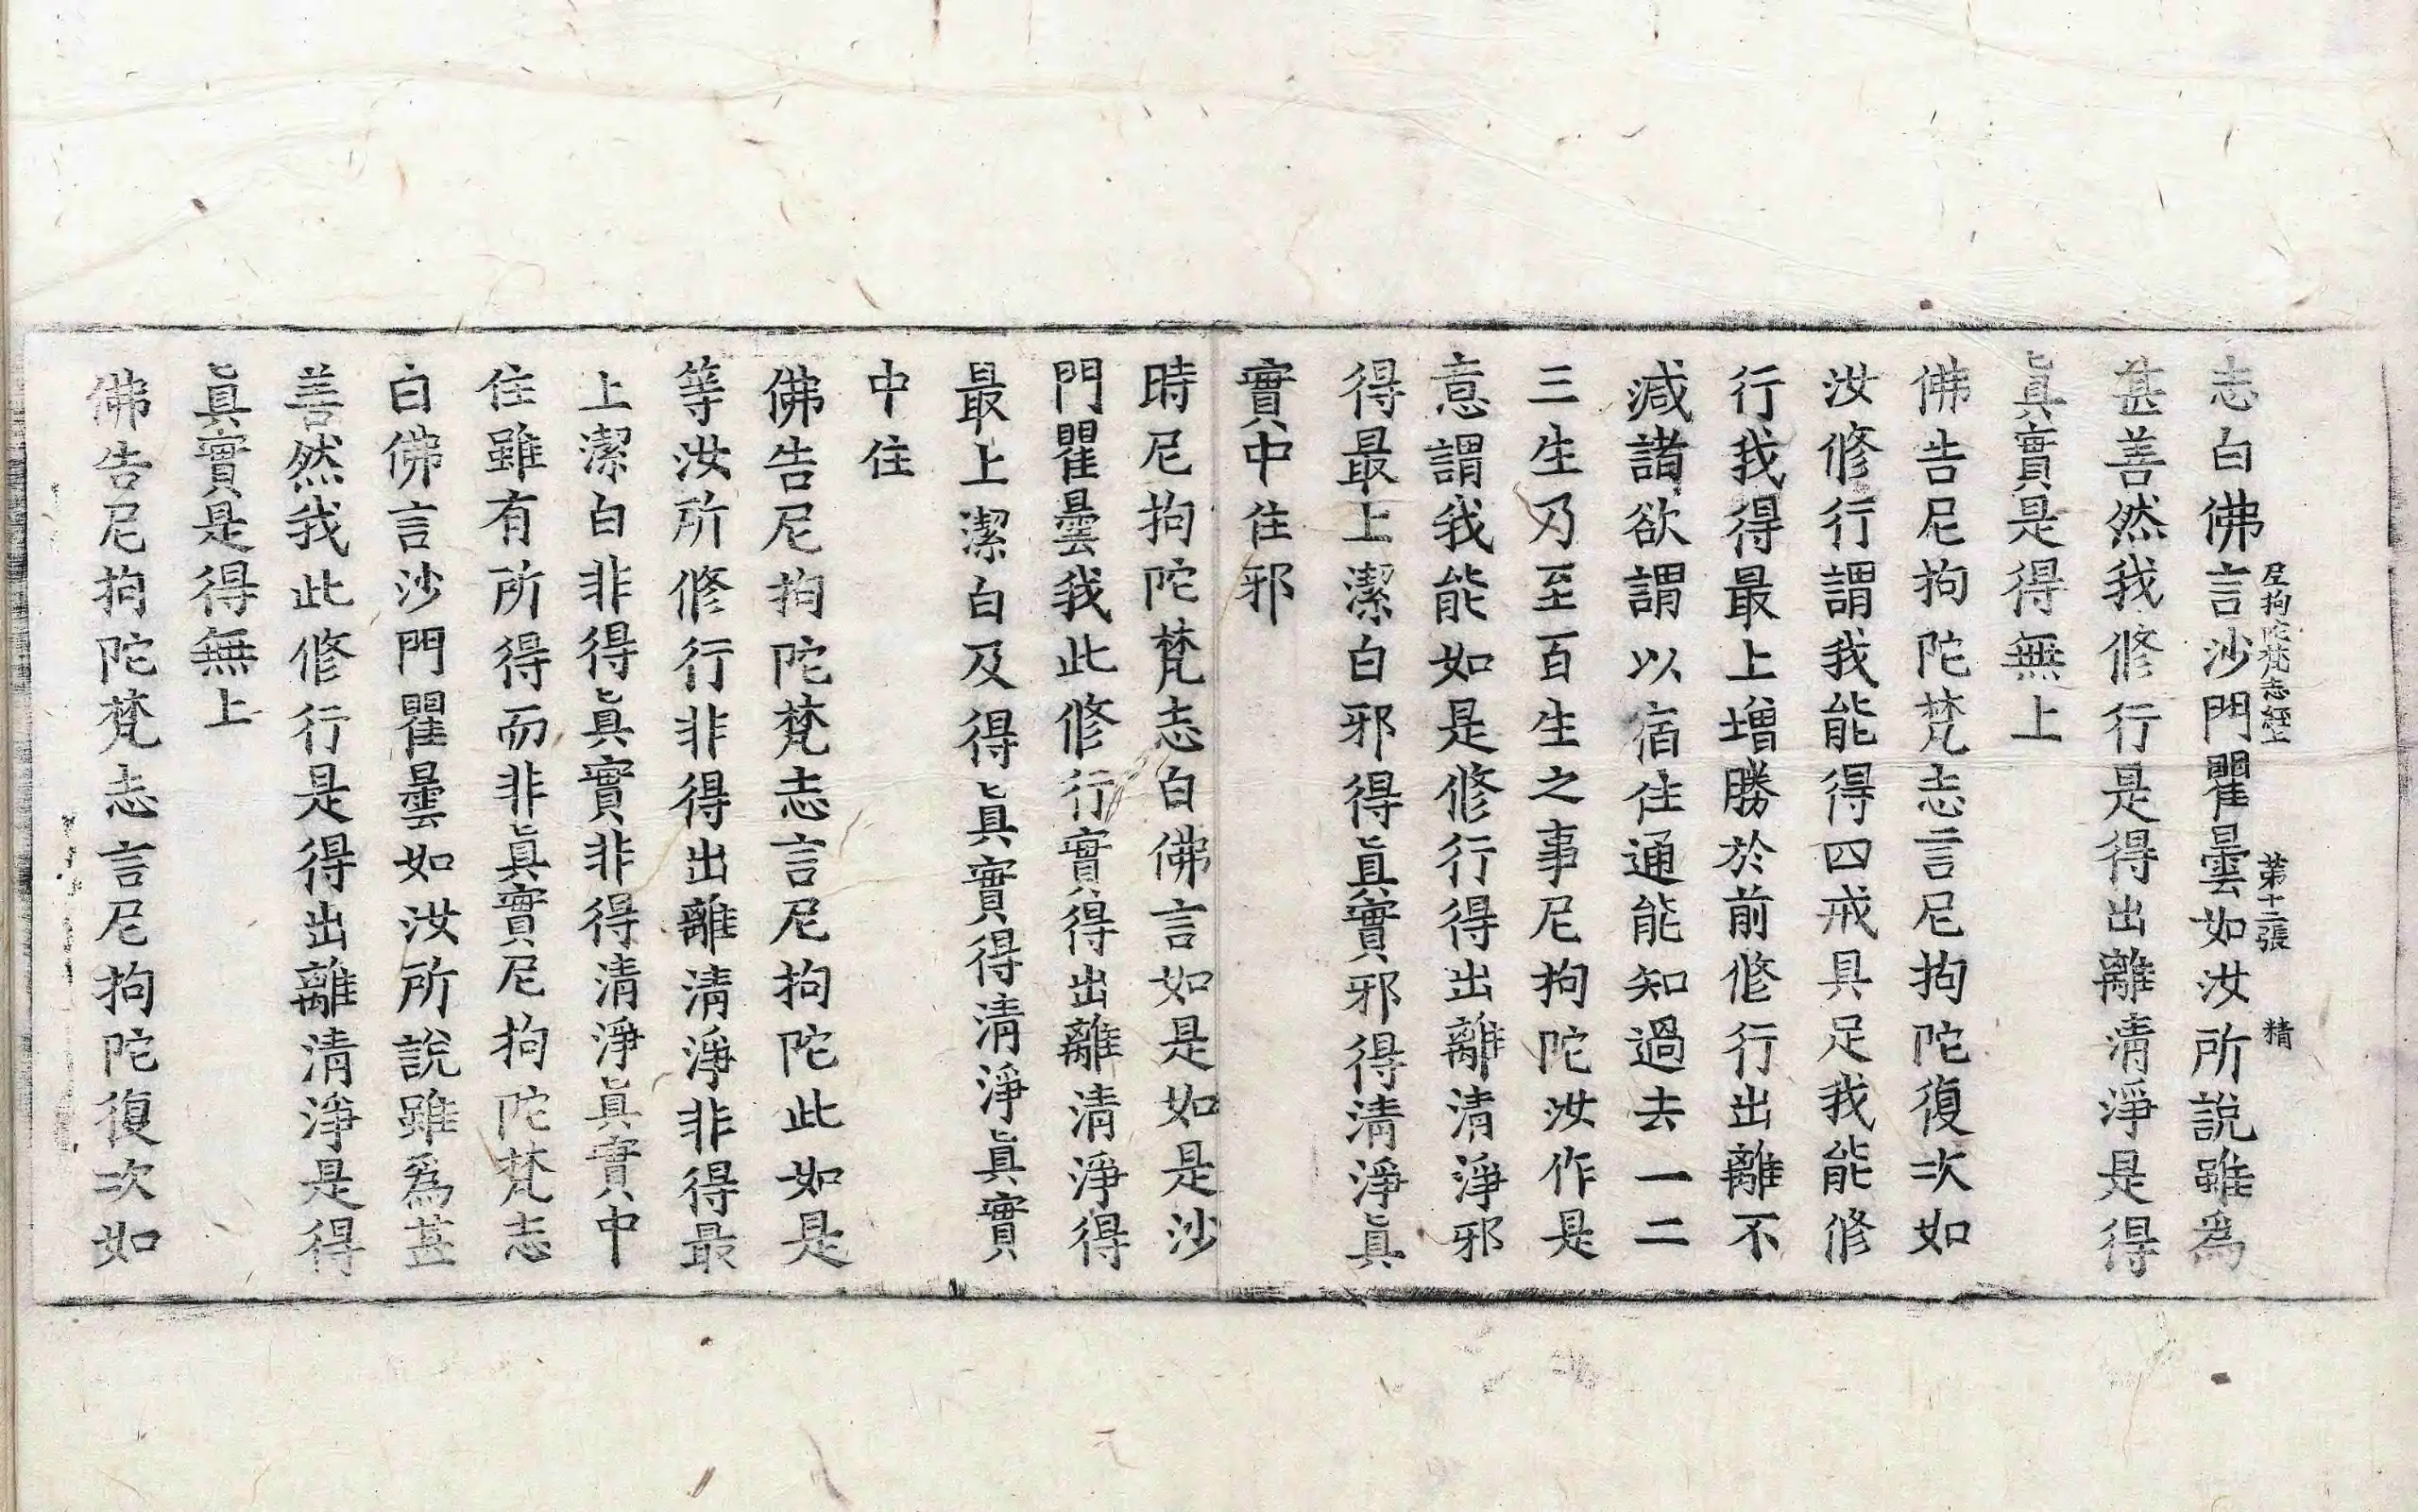 志白佛言沙門瞿曇如汝所說雖爲
尼拘陀梵志經上 第十二張 精
甚善然我修行是得出離淸淨是得
眞實是得無上
佛告尼拘陀梵志言尼拘陀復次如
汝修行謂我能得四戒具足我能修
行我得最上增勝於前修行出離不
減諸欲謂以宿住通能知過去一二
三生乃至百生之事尼拘陀汝作是
意謂我能如是修行得出離淸淨邪
得最上潔白邪得眞實邪得淸淨眞
實中住邪
時尼拘陀梵志白佛言如是如是沙
門瞿曇我此修行實得出離淸淨得
最上潔白及得眞實得淸淨眞實
中住
佛告尼拘陀梵志言尼拘陀此如是
等汝所修行非得出離淸淨非得最
上潔白非得眞實非得淸淨眞實中
住雖有所得而非眞實尼拘陀梵志
白佛言沙門瞿曇如汝所說雖爲甚
善然我此修行是得出離淸淨是得
眞實是得無上
佛告尼拘陀梵志言尼拘陀復次如